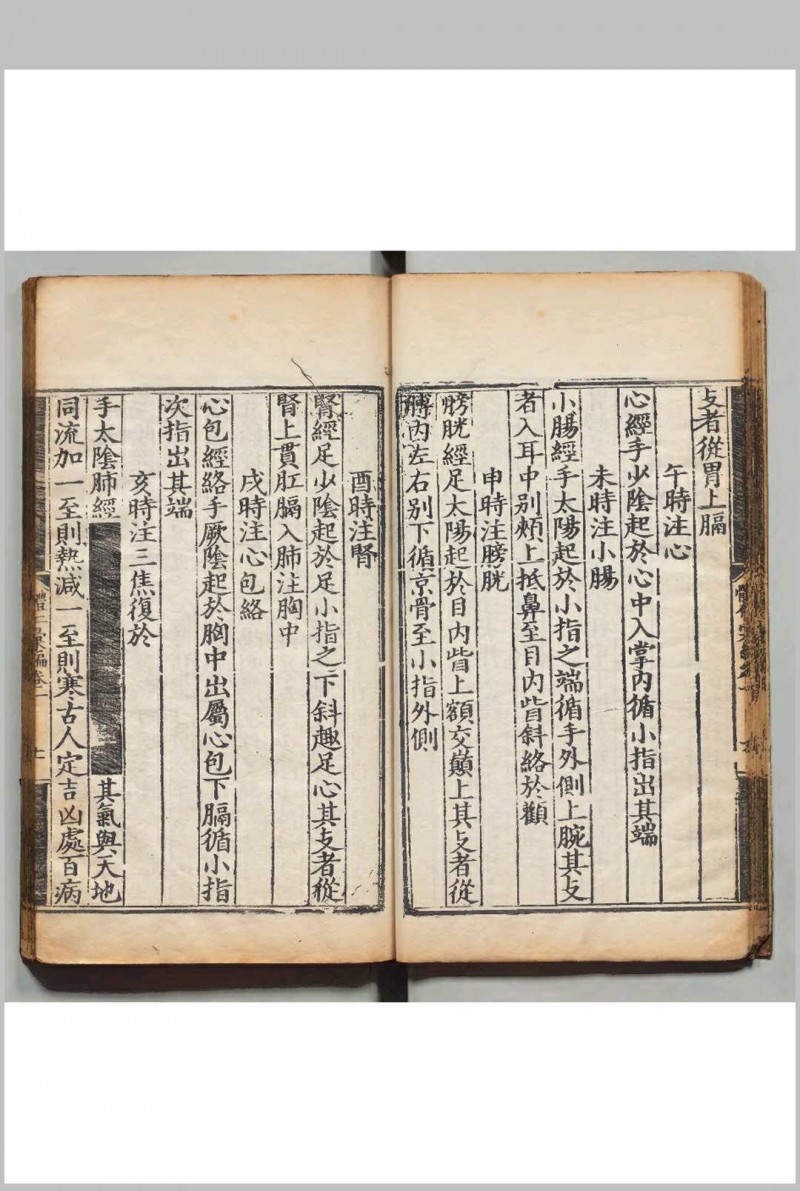 支者從胃上膈
午時注心
心經手少陰起於心中入掌內循小指出其端
未時注小腸
小腸經手太陽起於小指之端循手外側上腕其支
者入耳中別頰上抵鼻至目內眥斜絡於顴
申時注膀胱
膀胱經足太陽起於目內眥上額交巔上其支者從
膊內左右別下循京骨至小指外側
酉時注腎
腎經足少陰起於足小指之下斜趣足心其支者從
腎上貫肛膈入肺注胸中
戌時注心包絡
心包經絡手厥陰起於胸中出屬心包下膈循小指
次指出其端
亥時注三焦復於
手太陰肺經
其氣與天地
同流加一至則熱減一至則寒古人定吉凶處百病